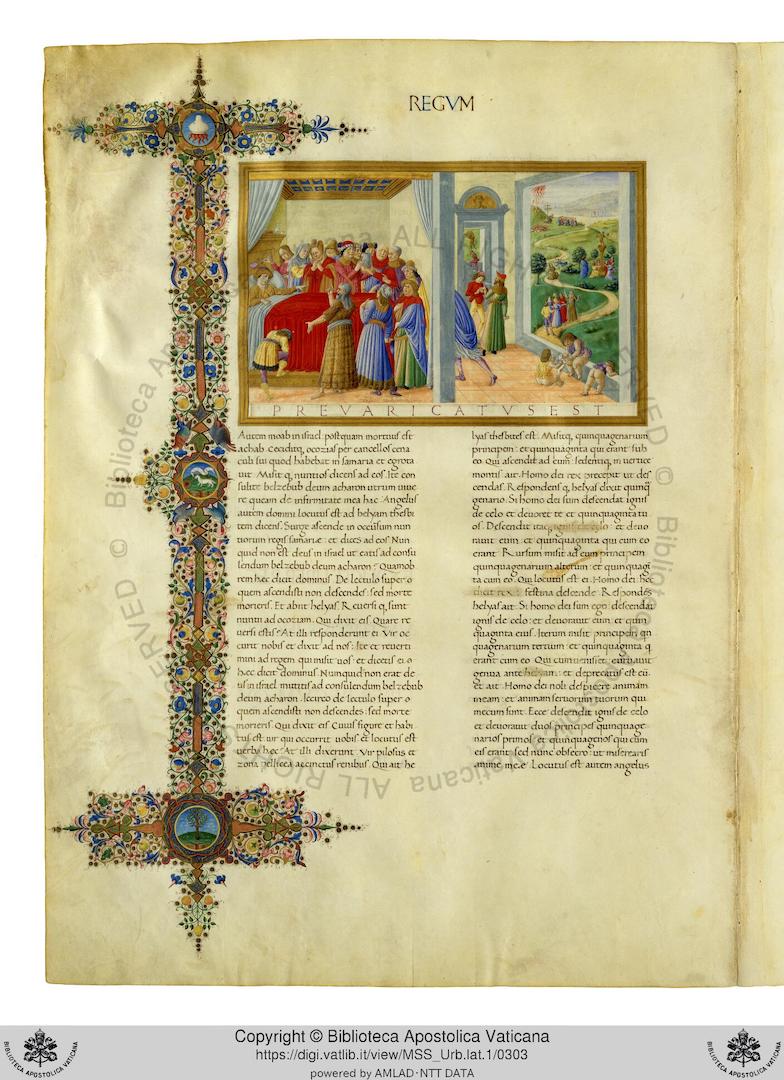 REGVM
PREVARICATVS EST
Autem moab in israel postquam mortuus est
achab. Ceciditq ocozias per cancellos cena
culi sui quod habebat in samaria et egrota
uit. Misitq nuntios dicens ad eos. Ite con
sulite belzebub deum acharon utrum uiue
re queam de infirmitate mea hac. Angelus
autem domini locutus est ad helyam thesbi
tem dicens. Surge ascende in occursum nun
tiorum regis samarie: et dices ad eos Nun
quid non est deus in israel ut eatis ad consu
lendum belzebub deum acharon? Quamob
rem hec dicit dominus. De lectulo super q
quem ascendisti non descendes: sed morte
morieris. Et abiit helyas. Reuersi q sunt
nuntii ad ocoziam. Qui dixit eis. Quare re
uersi estis? At illi responderunt ei. Vir oc
currit nobis et dixit ad nos: Ite et reuerti
mini ad regem qui misit uos: et dicetis ei
hec dicit dominus. Nunquid non erat de
us in israel mittitis ad consulendum belzebub
deum acharon. Iccirco de lectulo super q
quem ascendisti non descendes: sed morte
morieris. Qui dixit eis Cuius figure et habi
tus est uir qui occurrit uobis et locutus est
uerba hec? At illi dixerunt. Vir pilosus et
zona pellicea accinctus renibus. Qui ait he
lyas thesbites est. Misitq quinquagenarium
principem: et quinquaginta qui erant sub
eo. Qui ascendit ad eum: sedentiq in uertice
montis ait. Homo dei rex precepit ut des
cendas. Respondensq helyas dixit quinq
genario. Si homo dei sum descendat ignis
de celo et deuoret te et quinquaginta tu
os. Descendit itaq ignis de celo: et deuo
rauit eum: et quinquaginta qui cum eo
erant. Rursum misit ad eum principem
quinquagenarium alterum: et quinquagi
ta cum eo. Qui locutus est ei. Homo dei hec
dicit rex: festina descende. Respondes
helyas ait. Si homo dei sum ego: descendat
ignis de celo: et deuoret te et quin
quaginta tuos. Iterum misit principem qn
quagenarium tertium: et quinquaginta q
erant cum eo. Qui cum uenisset curuauit
genua ante helyam: et deprecatus est eu
et ait. Homo dei noli despicere animam
meam: et animam seruorum tuorum qui
mecum sunt. Ecce descendit ignis de celo
et deuorauit duos principes quinquage
narios primos et quinquagenos qui cum
eis erant: sed nunc obsecro: ut miserearis
anime mee. Locutus est autem angelus
Copyright © Biblioteca Apostolica Vaticana
https://digi.vatlib.it/view/MSS_Urb.lat.1/0303
powered by AMLAD·NTT DATA
BIBLIOTECA APOSTOLICA VATICANA
BIBLIOTECA APOSTOLICA VATICANA